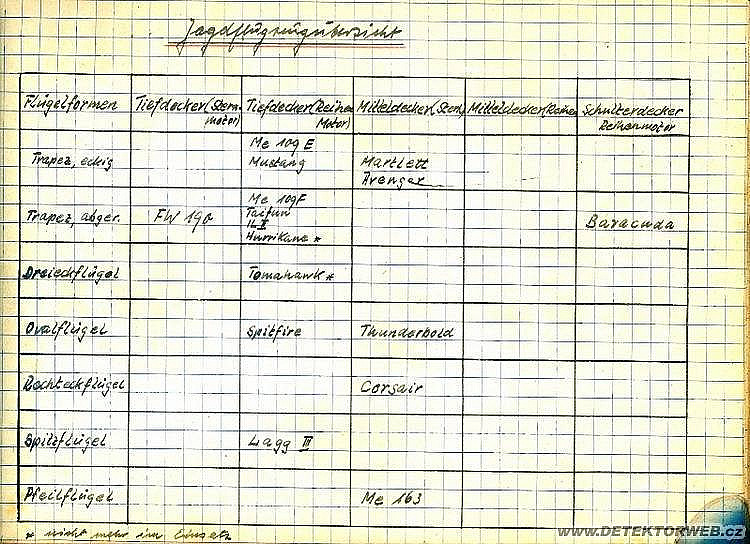 Jagdflugzeugübersicht
Flügelformen Tiefdecker (Stern- motor) Tiefdecker (Reihen Motor) Mitteldecker (Stern) Mitteldecker (Reihen Schulterdecker Reihenmotor
Trapez, eckig Me 109 E Mustang Martlett Avenger
Trapez, abger. FW 190 Me 109F Taifun IL II Hurrikane * Baracuda
Dreieckflügel Tomahawk *
Ovalflügel Spitfire Thunderbold
Rechteckflügel Corsair
Spitzflügel Lagg III
Pfeilflügel Me 163
* nicht mehr im Einsatz
WWW.DETEKTORWEB.CZ